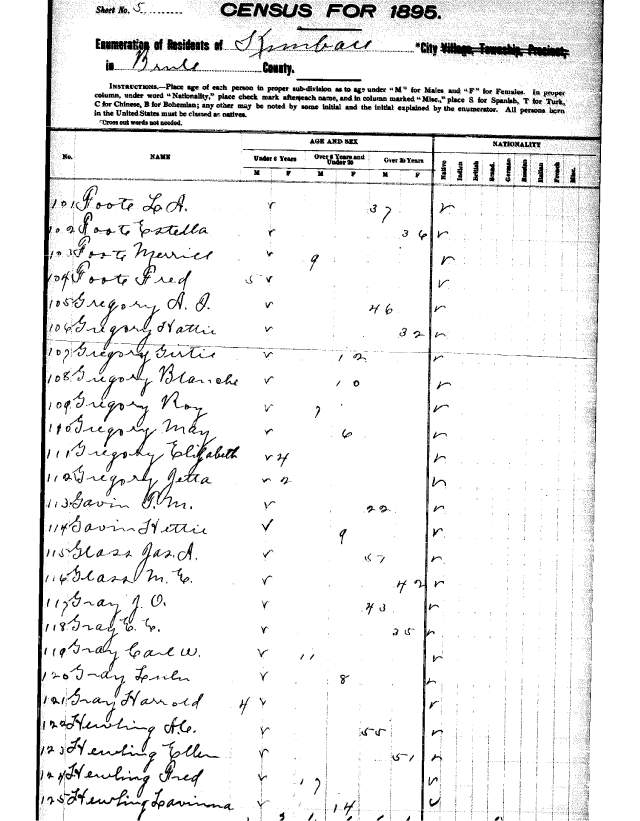 Sheet No. 5
CENSUS FOR 1895.
Enumeration of Residents of Kimball *City Village, Township, Precinct,
in Brule County.
INSTRUCTIONS.—Place age of each person in proper sub-division as to age under "M" for Males and "F" for Females. In proper
column, under word "Nationality," place check mark after each name, and in column marked "Misc.," place S for Spanish, T for Turk,
C for Chinese, B for Bohemian; any other may be noted by some initial and the initial explained by the enumerator. All persons born
in the United States must be classed as natives.
*Cross out words not needed.
AGE AND SEX NATIONALITY
No. NAME Under 6 Years Over 6 Years and Under 20 Over 20 Years
M F M F M F Native Indian British Scand. German Russian Italian French Misc.
101 Foote L. A. 37
102 Foote Estella 36
103 Foote Merrill 9
104 Foote Fred 5
105 Gregory A. J. 46
106 Gregory Hattie 32
107 Gregory Girtie 12
108 Gregory Blanche 10
109 Gregory Roy 7
110 Gregory May 6
111 Gregory Elizabeth 4
112 Gregory Jetta 2
113 Gavin T. M. 22
114 Gavin Hettie 9
115 Glass Jas. A. 57
116 Glass M. E. 42
117 Gray J. O. 43
118 Gray E. E. 35
119 Gray Carl W. 11
120 Gray Lulu 8
121 Gray Harrold 4
122 Hewling 55
123 Hewling Ellen 51
124 Hewling Fred 17
125 Hewling Lavinna 14